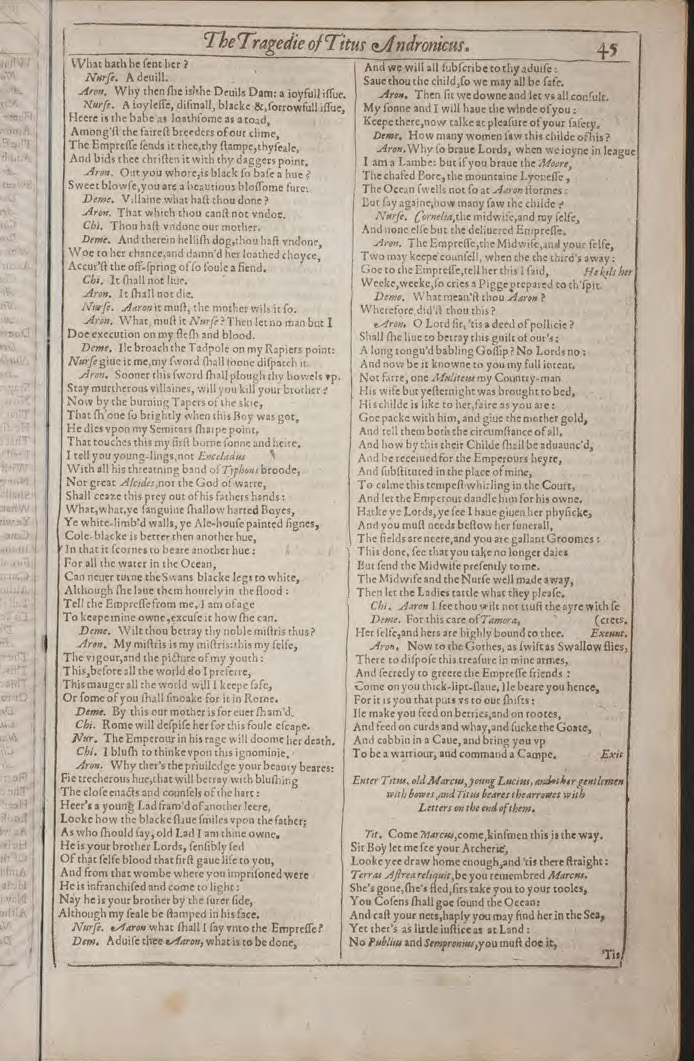 The Tragedie of Titus Andronicus.
45
What hath he ſent her?
Nurſe. A deuill.
Aron. Why then ſhe is the Deuils Dam: a ioyfull iſſue.
Nurſe. A ioyleſſe, diſmall, blacke &, ſorrowfull iſſue,
Heere is the babe as loathſome as a toad,
Among'ſt the faireſt breeders of our clime,
The Empreſſe ſends it thee, thy ſtampe, thy ſeale,
And bids thee chriſten it with thy daggers point.
Aron. Out you whore, is black ſo baſe a hue?
Sweet blowſe, you are a beautious bloſſome ſure.
Deme. Villaine what haſt thou done?
Aron. That which thou canſt not vndoe.
Chi. Thou haſt vndone our mother.
Deme. And therein helliſh dog, thou haſt vndone,
Woe to her chance, and damn'd her loathed choyce,
Accur'ſt the off-ſpring of ſo foule a fiend.
Chi. It ſhall not liue.
Aron. It ſhall not die.
Nurſe. Aaron it muſt, the mother wils it ſo.
Aron. What, muſt it Nurſe? Then let no man but I
Doe execution on my fleſh and blood.
Deme. Ile broach the Tadpole on my Rapiers point:
Nurſe giue it me, my ſword ſhall ſoone diſpatch it.
Aron. Sooner this ſword ſhall plough thy bowels vp.
Stay murtherous villaines, will you kill your brother?
Now by the burning Tapers of the skie,
That ſh'one ſo brightly when this Boy was got,
He dies vpon my Semitars ſharpe point,
That touches this my firſt borne ſonne and heire.
I tell you young-lings, not Enceladus
With all his threatning band of Typhons broode,
Nor great Alcides, nor the God of warre,
Shall ceaze this prey out of his fathers hands:
What, what, ye ſanguine ſhallow harted Boyes,
Ye white-limb'd walls, ye Ale-houſe painted ſignes,
Cole-blacke is better then another hue,
In that it ſcornes to beare another hue:
For all the water in the Ocean,
Can neuer turne the Swans blacke legs to white,
Although ſhe laue them hourely in the flood:
Tell the Empreſſe from me, I am of age
To keepe mine owne, excuſe it how ſhe can.
Deme. Wilt thou betray thy noble miſtris thus?
Aron. My miſtris is my miſtris: this my ſelfe,
The vigour, and the picture of my youth:
This, before all the world do I preferre,
This mauger all the world will I keepe ſafe,
Or ſome of you ſhall ſmoake for it in Rome.
Deme. By this our mother is for euer ſham'd.
Chi. Rome will deſpiſe her for this foule eſcape.
Nur. The Emperour in his rage will doome her death.
Chi. I bluſh to thinke vpon this ignominie.
Aron. Why ther's the priuiledge your beauty beares:
Fie trecherous hue, that will betray with bluſhing
The cloſe enacts and counſels of the hart:
Heer's a young Lad fram'd of another leere,
Looke how the blacke ſlaue ſmiles vpon the father;
As who ſhould ſay, old Lad I am thine owne.
He is your brother Lords, ſenſibly fed
Of that ſelfe blood that firſt gaue life to you,
And from that wombe where you impriſoned were
He is infranchiſed and come to light:
Nay he is your brother by the ſurer ſide,
Although my ſeale be ſtamped in his face.
Nurſe. Aaron what ſhall I ſay vnto the Empreſſe?
Dem. Aduiſe thee Aaron, what is to be done,
And we will all ſubſcribe to thy aduiſe:
Saue thou the child, ſo we may all be ſafe.
Aron. Then ſit we downe and let vs all conſult.
My ſonne and I will haue the winde of you:
Keepe there, now talke at pleaſure of your ſafety.
Deme. How many women ſaw this childe of his?
Aron. Why ſo braue Lords, when we ioyne in league
I am a Lambe: but if you braue the Moore,
The chafed Bore, the mountaine Lyoneſſe,
The Ocean ſwells not ſo at Aaron ſtormes:
But ſay againe, how many ſaw the childe?
Nurſe. Cornelia, the midwife, and my ſelfe,
And none elſe but the deliuered Empreſſe.
Aron. The Empreſſe, the Midwife, and your ſelfe,
Two may keepe counſell, when the the third's away:
Goe to the Empreſſe, tell her this I ſaid, He kils her
Weeke, weeke, ſo cries a Pigge prepared to th'ſpit.
Deme. What mean'ſt thou Aaron?
Wherefore did'ſt thou this?
Aron. O Lord ſir, 'tis a deed of pollicie?
Shall ſhe liue to betray this guilt of our's:
A long tongu'd babling Goſſip? No Lords no:
And now be it knowne to you my full intent.
Not farre, one Muliteus my Country-man
His wife but yeſternight was brought to bed,
His childe is like to her, faire as you are:
Goe packe with him, and giue the mother gold,
And tell them both the circumſtance of all,
And how by this their Childe ſhall be aduaunc'd,
And be receiued for the Emperours heyre,
And ſubſtituted in the place of mine,
To calme this tempeſt whirling in the Court,
And let the Emperour dandle him for his owne.
Harke ye Lords, ye ſee I haue giuen her phyſicke,
And you muſt needs beſtow her funerall,
The fields are neere, and you are gallant Groomes:
This done, ſee that you take no longer daies
But ſend the Midwife preſently to me.
The Midwife and the Nurſe well made away,
Then let the Ladies tattle what they pleaſe.
Chi. Aaron I ſee thou wilt not truſt the ayre with ſe
Deme. For this care of Tamora, (crets.
Her ſelfe, and hers are highly bound to thee. Exeunt.
Aron. Now to the Gothes, as ſwift as Swallow flies,
There to diſpoſe this treaſure in mine armes,
And ſecretly to greete the Empreſſe friends:
Come on you thick-lipt-ſlaue, Ile beare you hence,
For it is you that puts vs to our ſhifts:
Ile make you feed on berries, and on rootes,
And feed on curds and whay, and ſucke the Goate,
And cabbin in a Caue, and bring you vp
To be a warriour, and command a Campe. Exit
Enter Titus, old Marcus, young Lucius, and other gentlemen
with bowes, and Titus beares the arrowes with
Letters on the end of them.
Tit. Come Marcus, come, kinſmen this is the way.
Sir Boy let me ſee your Archerie,
Looke yee draw home enough, and 'tis there ſtraight:
Terras Aſtrea reliquit, be you remembred Marcus.
She's gone, ſhe's fled, ſirs take you to your tooles,
You Coſens ſhall goe ſound the Ocean:
And caſt your nets, haply you may find her in the Sea,
Yet ther's as little iuſtice as at Land:
No Publius and Sempronius, you muſt doe it,
'Tis